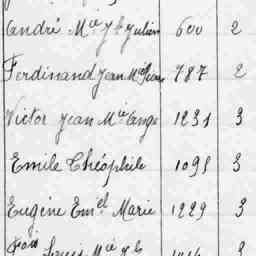 André Mie Jh Julien 600 2
Ferdinand Jean Mie 787 2
Victor Jean Mie Ange 1231 3
Emile Théophile 1095 3
Eugène Emel Marie 1229 3
Fois Louis Mie Jh 3